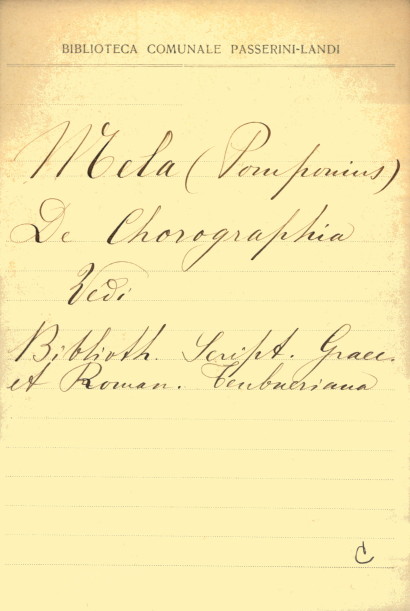 BIBLIOTECA COMUNALE PASSERINI-LANDI
Mela (Pomponius)
De Chorographia
Vedi
Biblioth. Script. Graec.
et Roman. Teubneriana
C